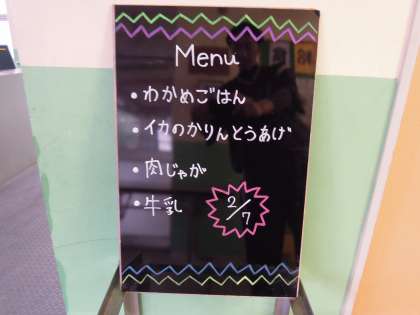 Menu
・わかめごはん
・イカのかりんとうあげ
・肉じゃが
・牛乳
2/7